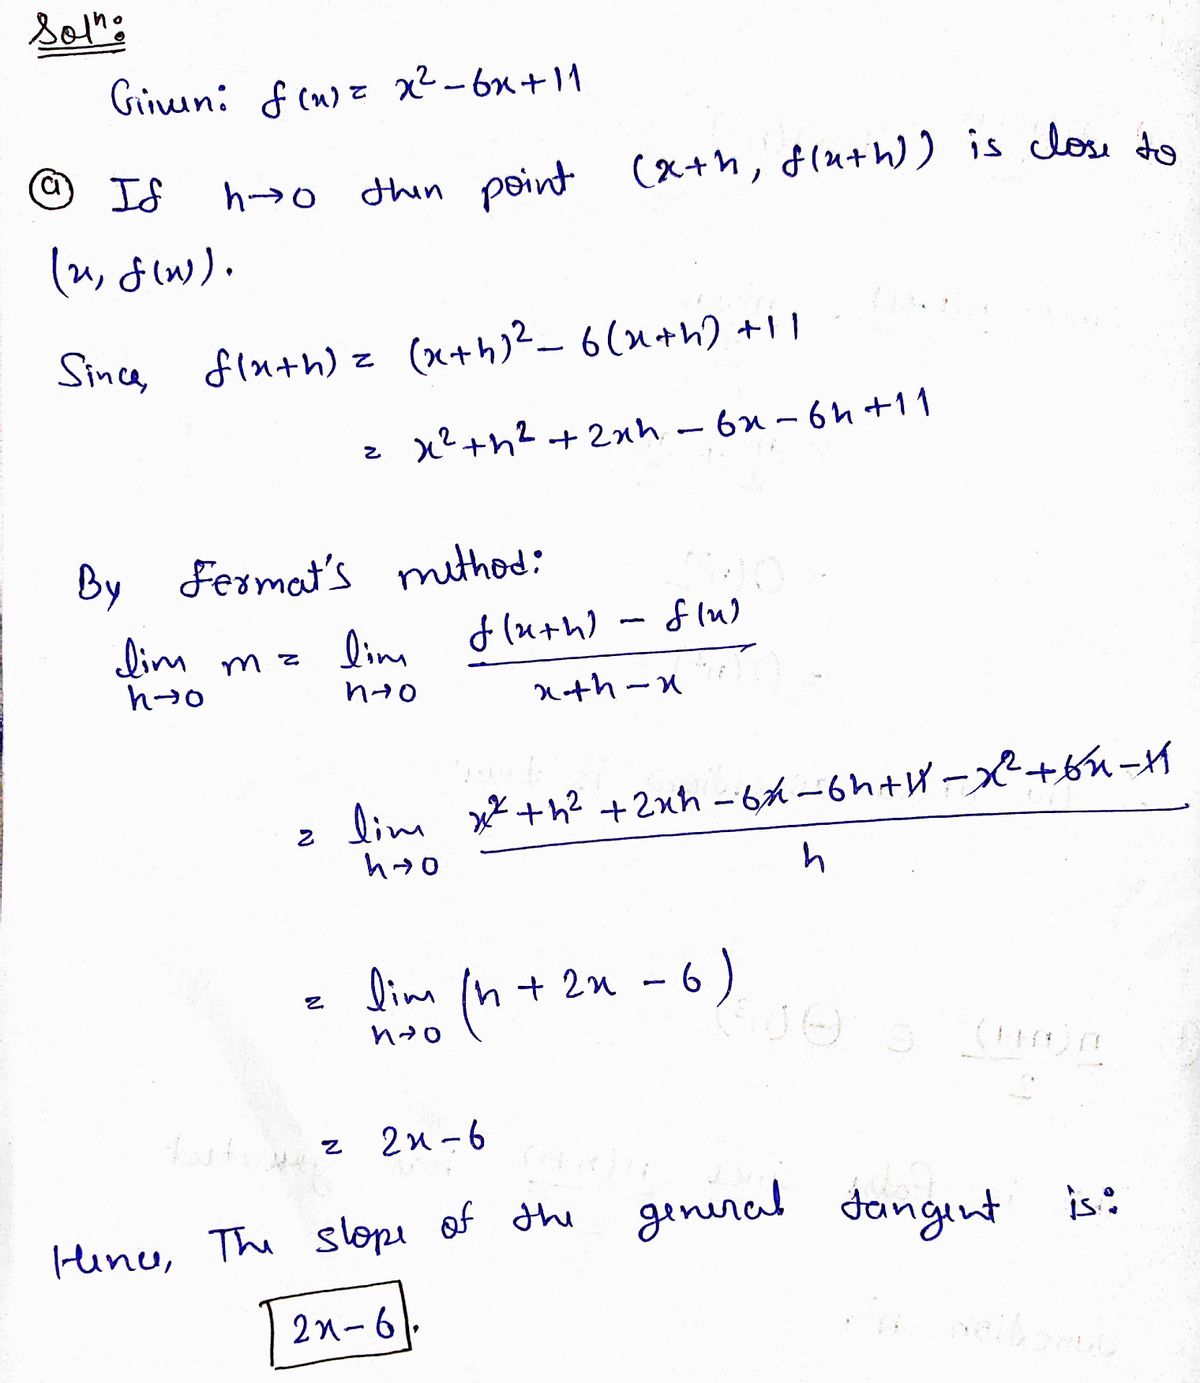 Solⁿ:
Given: f(x) = x² - 6x + 11
(a) If h→0 then point (x+h, f(x+h)) is close to
(x, f(x)).
Since, f(x+h) = (x+h)² - 6(x+h) + 11
= x² + h² + 2xh - 6x - 6h + 11
By Fermat's method:
lim h→0 m = lim h→0 (f(x+h) - f(x)) / (x+h-x)
= lim h→0 (x² + h² + 2xh - 6x - 6h + 11 - x² + 6x - 11) / h
= lim h→0 (h + 2x - 6)
= 2x - 6
Hence, The slope of the general tangent is:
2x - 6.